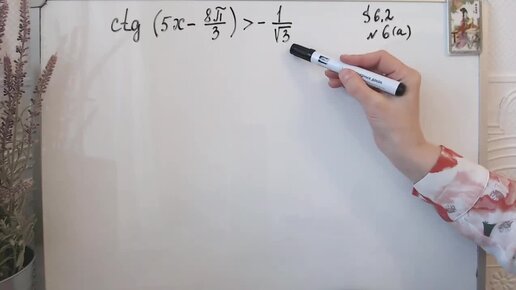 ctg (5x - 8π/3) > - 1/√3
§6.2
№6(а)